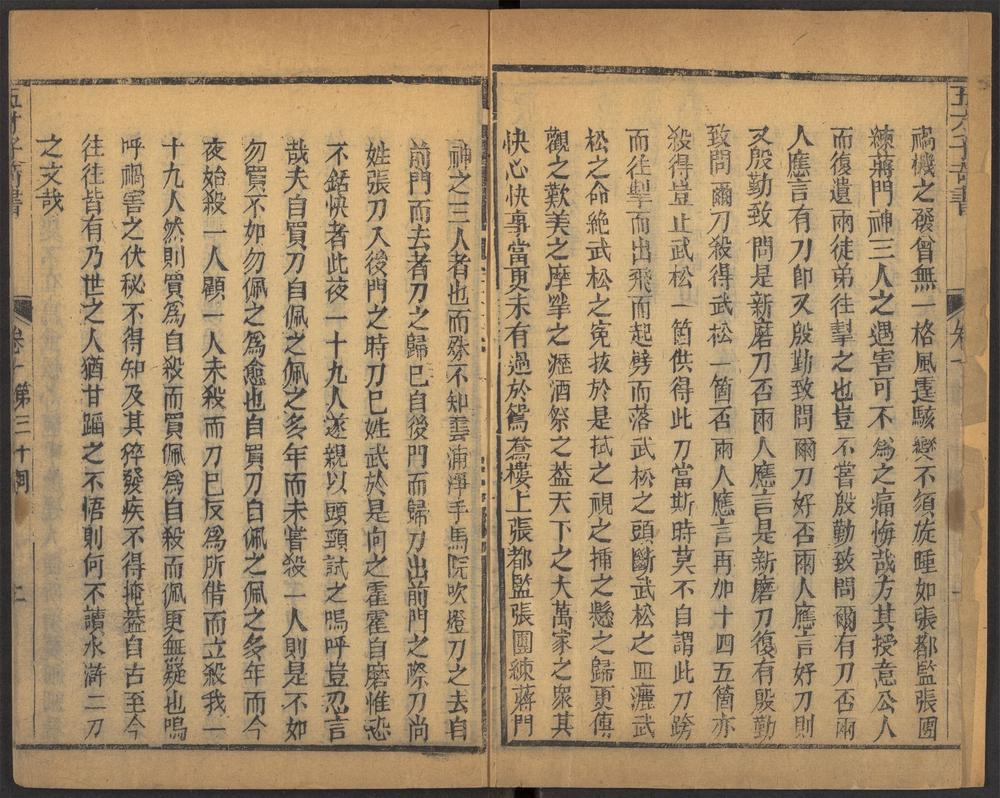 禍機之發曾無一格風霆駭變不須旋踵如張都監張團
練蔣門神三人之遇害可不爲之痛悔哉方其授意公人
而復遺兩徒弟往幫之也豈不嘗殷勤致問爾有刀否兩
人應言有刀即又殷勤致問爾刀好否兩人應言好刀則
又殷勤致問是新磨刀否兩人應言是新磨刀復有殷勤
致問爾刀殺得武松一箇否兩人應言再加十四五箇亦
殺得豈止武松一箇供得此刀當斯時莫不自謂此刀跨
而往掣而出飛而起劈而落武松之頭斷武松之血灑武
松之命絕武松之冤拔於是拭之視之插之懸之歸更傳
觀之歎美之摩挲之瀝酒祭之蓋天下之大萬家之眾其
快心快事當更未有過於鴛鴦樓上張都監張團練蔣門
神之三人者也而殊不知雲浦淨手馬院吹燈刀之去自
前門而去者刀之歸已自後門而歸刀出前門之際刀尚
姓張刀入後門之時刀已姓武於是向之霍霍自磨惟恐
不銛快者此夜一十九人遂親以頭頸試之嗚呼豈忍言
哉夫自買刀自佩之佩之多年而未嘗殺一人則是不如
勿買不如勿佩之爲愈也自買刀自佩之佩之多年而今
夜始殺一人顧一人未殺而刀已反爲所借而立殺我一
十九人然則買爲自殺而買佩爲自殺而佩更無疑也嗚
呼禍害之伏秘不得知及其猝發疾不得掩蓋自古至今
往往皆有乃世之人猶甘蹈之不悟則何不讀水滸二刀
之文哉
卷十 第三十回